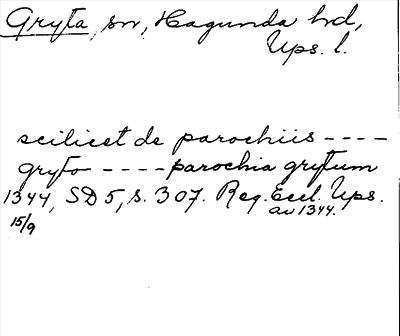 Gryta, sn, Hagunda hd,
Ups. l.
scilicet de parochiis ----
gryto ---- parochia grytum
1344, SD 5, s. 307. Reg. Eccl. Ups.
av 1344.
15/9